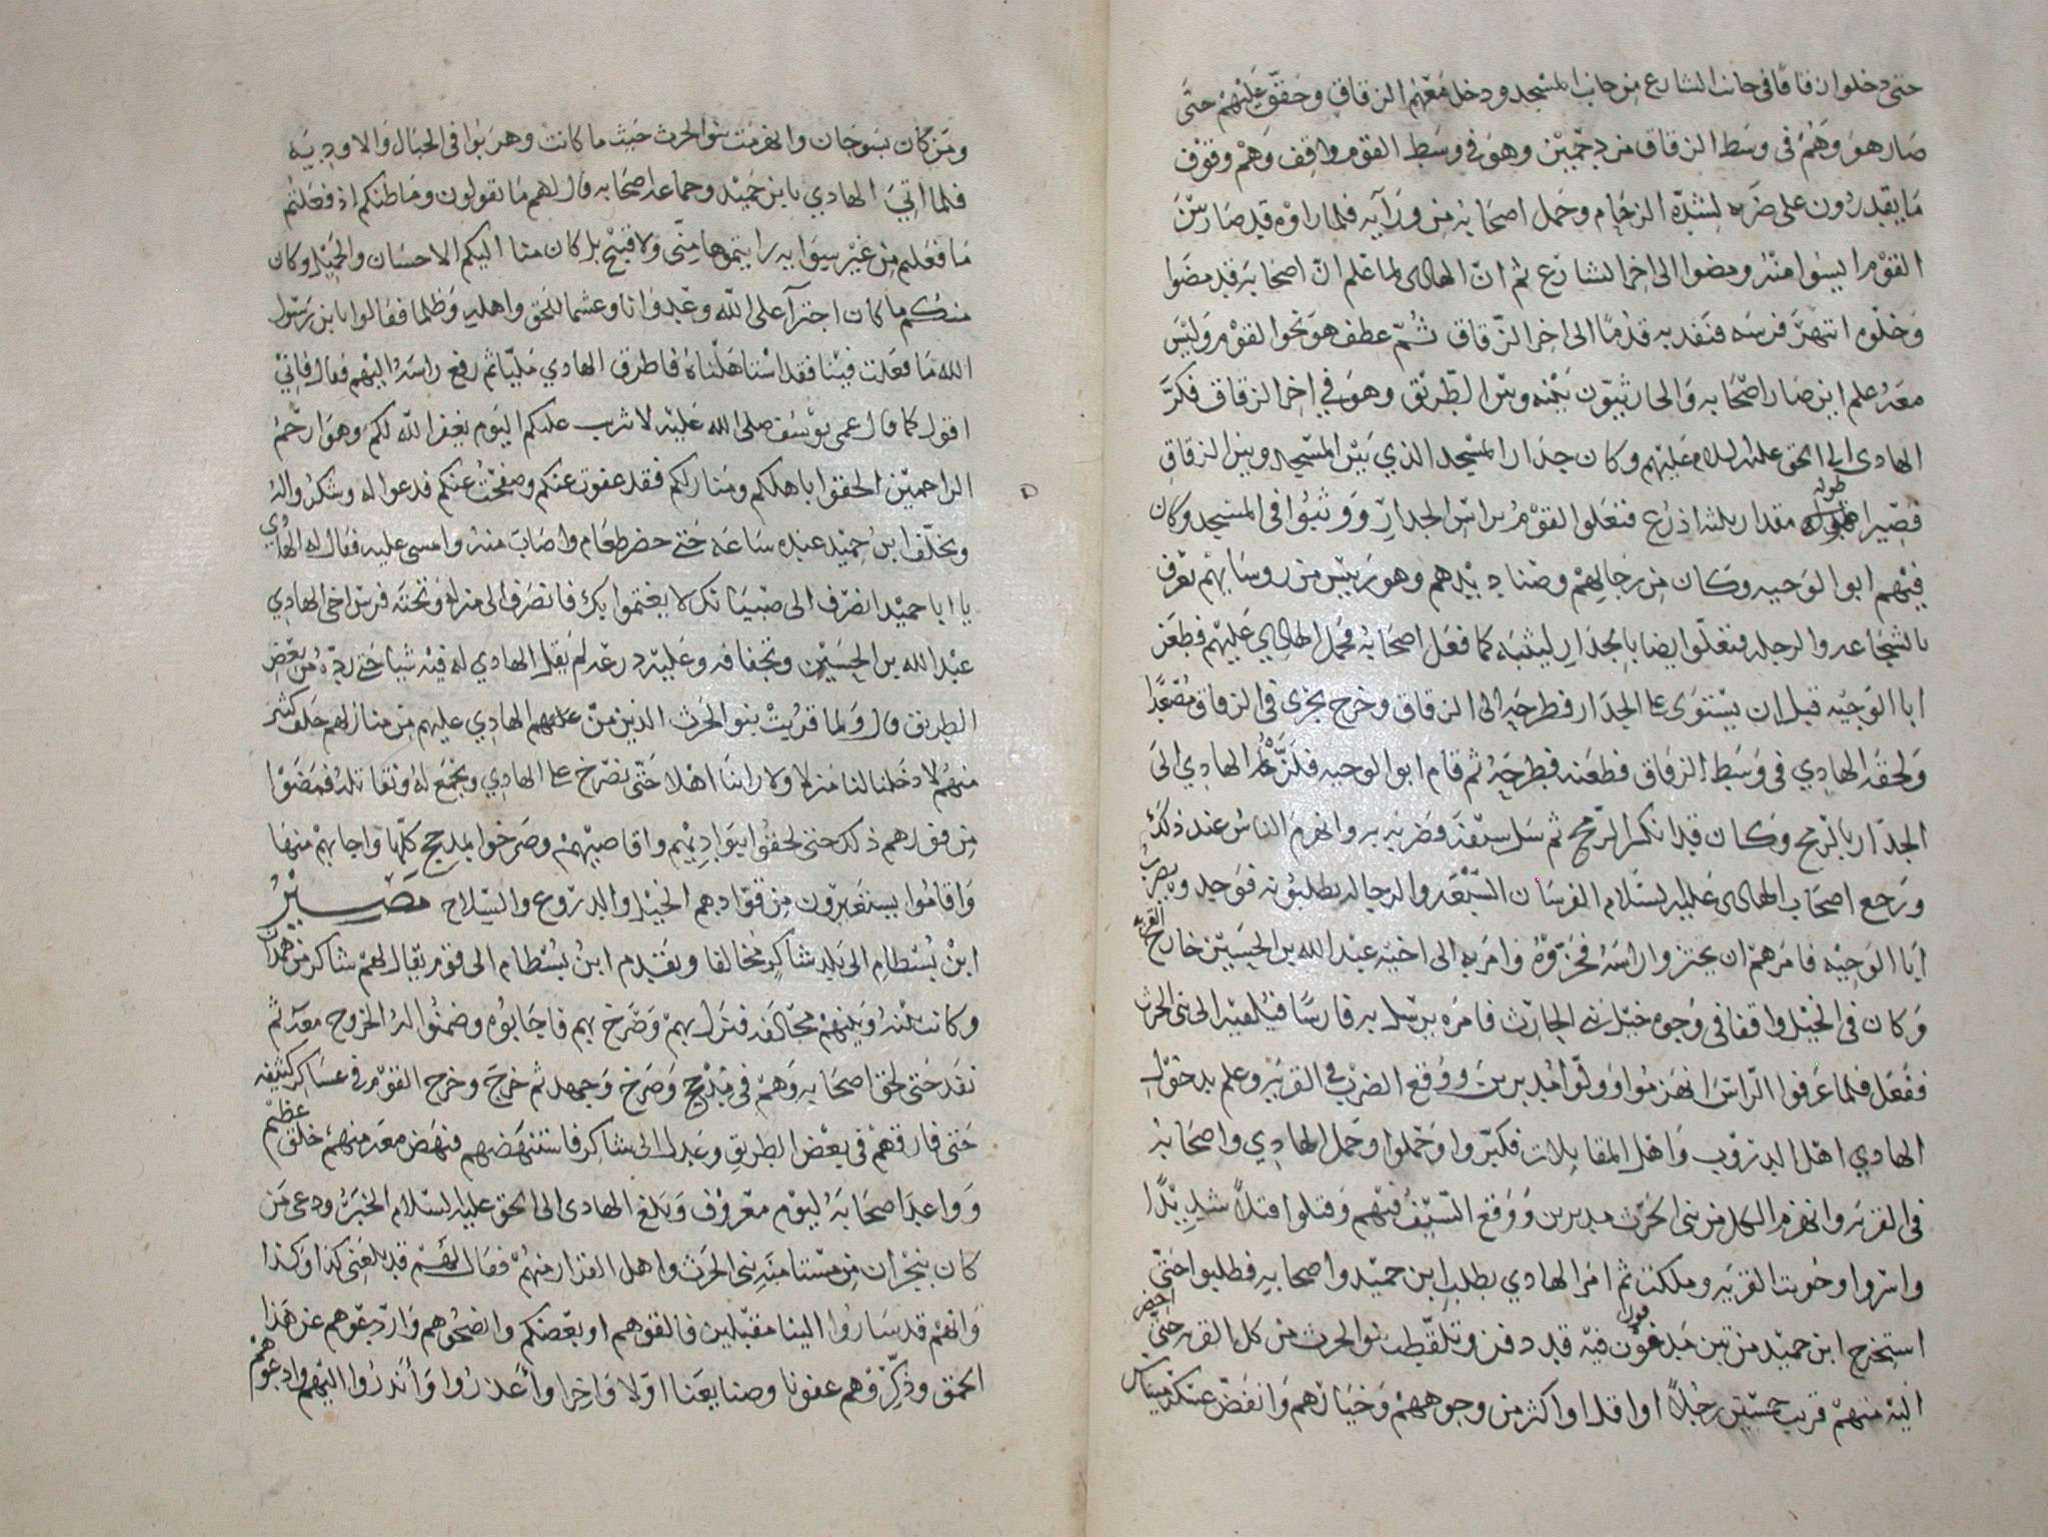 حتى دخلوا زقاقا في جانب الشارع من جانب المسجد ودخل معهم الزقاق وحقق عليهم حتى
صار هو وهم في وسط الزقاق مزدحمين وهو في وسط القوم واقف وهم وقوف
ما يقدرون على ضربه لشدة الزحام وحمل اصحابه من ورآيه فلما راوه قد صار بين
القوم ايسوا منه ومضوا الى اخر الشارع ثم ان الهادى لما علم ان اصحابه قد مضوا
وخلوه انتهز فرسه فنفد به قدما الى اخر الزقاق ثم عطف هو نحو القوم وليس
معه علم اين صار اصحابه والحارثيون بينه وبين الطريق وهو في اخر الزقاق فكر
الهادى الى الحق عليه السلام عليهم وكان جدار المسجد الذي بين المسجد وبين الزقاق
قصيرا طوله مقدار ثلثه اذرع فتعلوا القوم براس الجدار ووثبوا في المسجد وكان
فيهم ابو الوجيه وكان من رجالهم وصناديدهم وهو رييس من روسايهم يعرف
بالشجاعه والرجله فتعلوا ايضا بالجدار ليثبه كما فعل اصحابه فحمل الهادي عليهم فطعن
ابا الوجيه قبل ان يستوى على الجدار فطرحه الى الزقاق وخرج يجرى في الزقاق مصعدا
ولحقه الهادي في وسط الزقاق فطعنه فطرحه ثم قام ابو الوجيه فلزه الهادي الى
الجدار بالرمح وكان قد انكسر الرمح ثم سل سيفه فضربه به وانهزم الناس عند ذلك
ورجع اصحاب الهادى عليه السلام الفرسان السبعه والرجاله يطلبونه فوجدوه يضرب
ابا الوجيه فامرهم ان يحتزوا راسه فحزوه وامر به الى اخيه عبد الله بن الحسين خارج القريه
وكان في الخيل واقفا في وجوه خيل بني الحارث فامره يرسل به فارسا فيلقيه الى بنى الحرث
ففعل فلما عرفوا الراس انهزموا وولوا مدبرين ووقع الضرب في القريه وعلم بدخول
الهادي اهل الدروب واهل المقابلات فكبروا وحملوا وحمل الهادي واصحابه
في القريه وانهزم الكل من بنى الحرث مدبرين ووقع السيف فيهم وقتلوا قتلا شديدا
واسروا وحويت القريه وملكت ثم امر الهادي بطلب ابن حميد واصحابه فطلبوا حتى
استخرج ابن حميد من تبن مدفون فيه قد دفن وتلقطت بنو الحرث من كل القريه حتى احضر
اليه منهم قريب خمسين رجلا او اقل او اكثر من وجوههم وخيارهم وانفض عسكر ميناس
ومن كان بسوجان وانهزمت بنو الحرث حيث ما كانت وهربوا في الجبال والاوديه
فلما اتي الهادي بابن حميد وجماعه اصحابه قال لهم ما تقولون وما ظنكم اذ فعلتم
ما فعلتم من غير سوايه رايتموها مني ولا قبيح بل كان منا اليكم الاحسان والجميل وكان
منكم ما كان اجترآ على الله وعدوانا وغشما للحق واهله وظلما فقالوا يا بن رسول
الله ما فعلت فينا فقد استاهلناه فاطرق الهادي مليا ثم رفع راسه اليهم فقال فاني
اقول كما قال عمى يوسف صلى الله عليه لا تثريب عليكم اليوم يغفر الله لكم وهو ارحم
الراحمين الحقوا باهلكم ومنازلكم فقد عفوت عنكم وصفحت عنكم فدعوا له وشكروا له
وتخلف ابن حميد عنده ساعه حتى حضر طعام واصاب منه وامسى عليه فقال له الهادي
يا ابا حميد انصرف الى صبيانك لا يغتموا بك فانصرف الى منزله وتحته فرس اخى الهادي
عبد الله بن الحسين وتجفافه وعليه درعه لم يقل الهادي له فيه شيا حتى رده من بعض
الطريق قال ولما قربت بنو الحرث الذين من عليهم الهادي عليهم من منازلهم حلف كثير
منهم لا دخلنا لنا منزلا ولا راينا اهلا حتى نصرخ على الهادي ونجمع له ونقاتله فمضوا
من فورهم ذلك حتى لحقوا ببواديهم واقاصيهم وصرخوا بمدحج كلها واجابهم منها
واقاموا يستعيرون من قوادهم الخيل والدروع والسلاح مصير
ابن بسطام الى بلد شاكر مخالفا وتقدم ابن بسطام الى قوم يقال لهم شاكر من همدان
وكانت بينه وبينهم محالفه فنزل بهم وصرخ بهم فاجابوه وضمنوا له الخروج معه ثم
نفد حتى لحق اصحابه وهم في مدحج وصرخ وجهد ثم خرج وخرج القوم في عساكر كثيفه
حتى فارقهم في بعض الطريق وعدل الى شاكر فاستنهضهم فنهض معه منهم خلق عظيم
وواعد اصحابه ليوم معروف وبلغ الهادى الى الحق عليه السلام الخبر ودعى من
كان بنجران من مستامنه بنى الحرث واهل القرار منهم فقال لهم قد بلغنى كذا وكذا
وانهم قد ساروا الينا مقبلين فالقوهم او بعضكم وانصحوهم واردعوهم عن هذا
الحمق وذكروهم عفونا وصنايعنا اولا واخرا واعذروا وانذروا اليهم وادعوهم